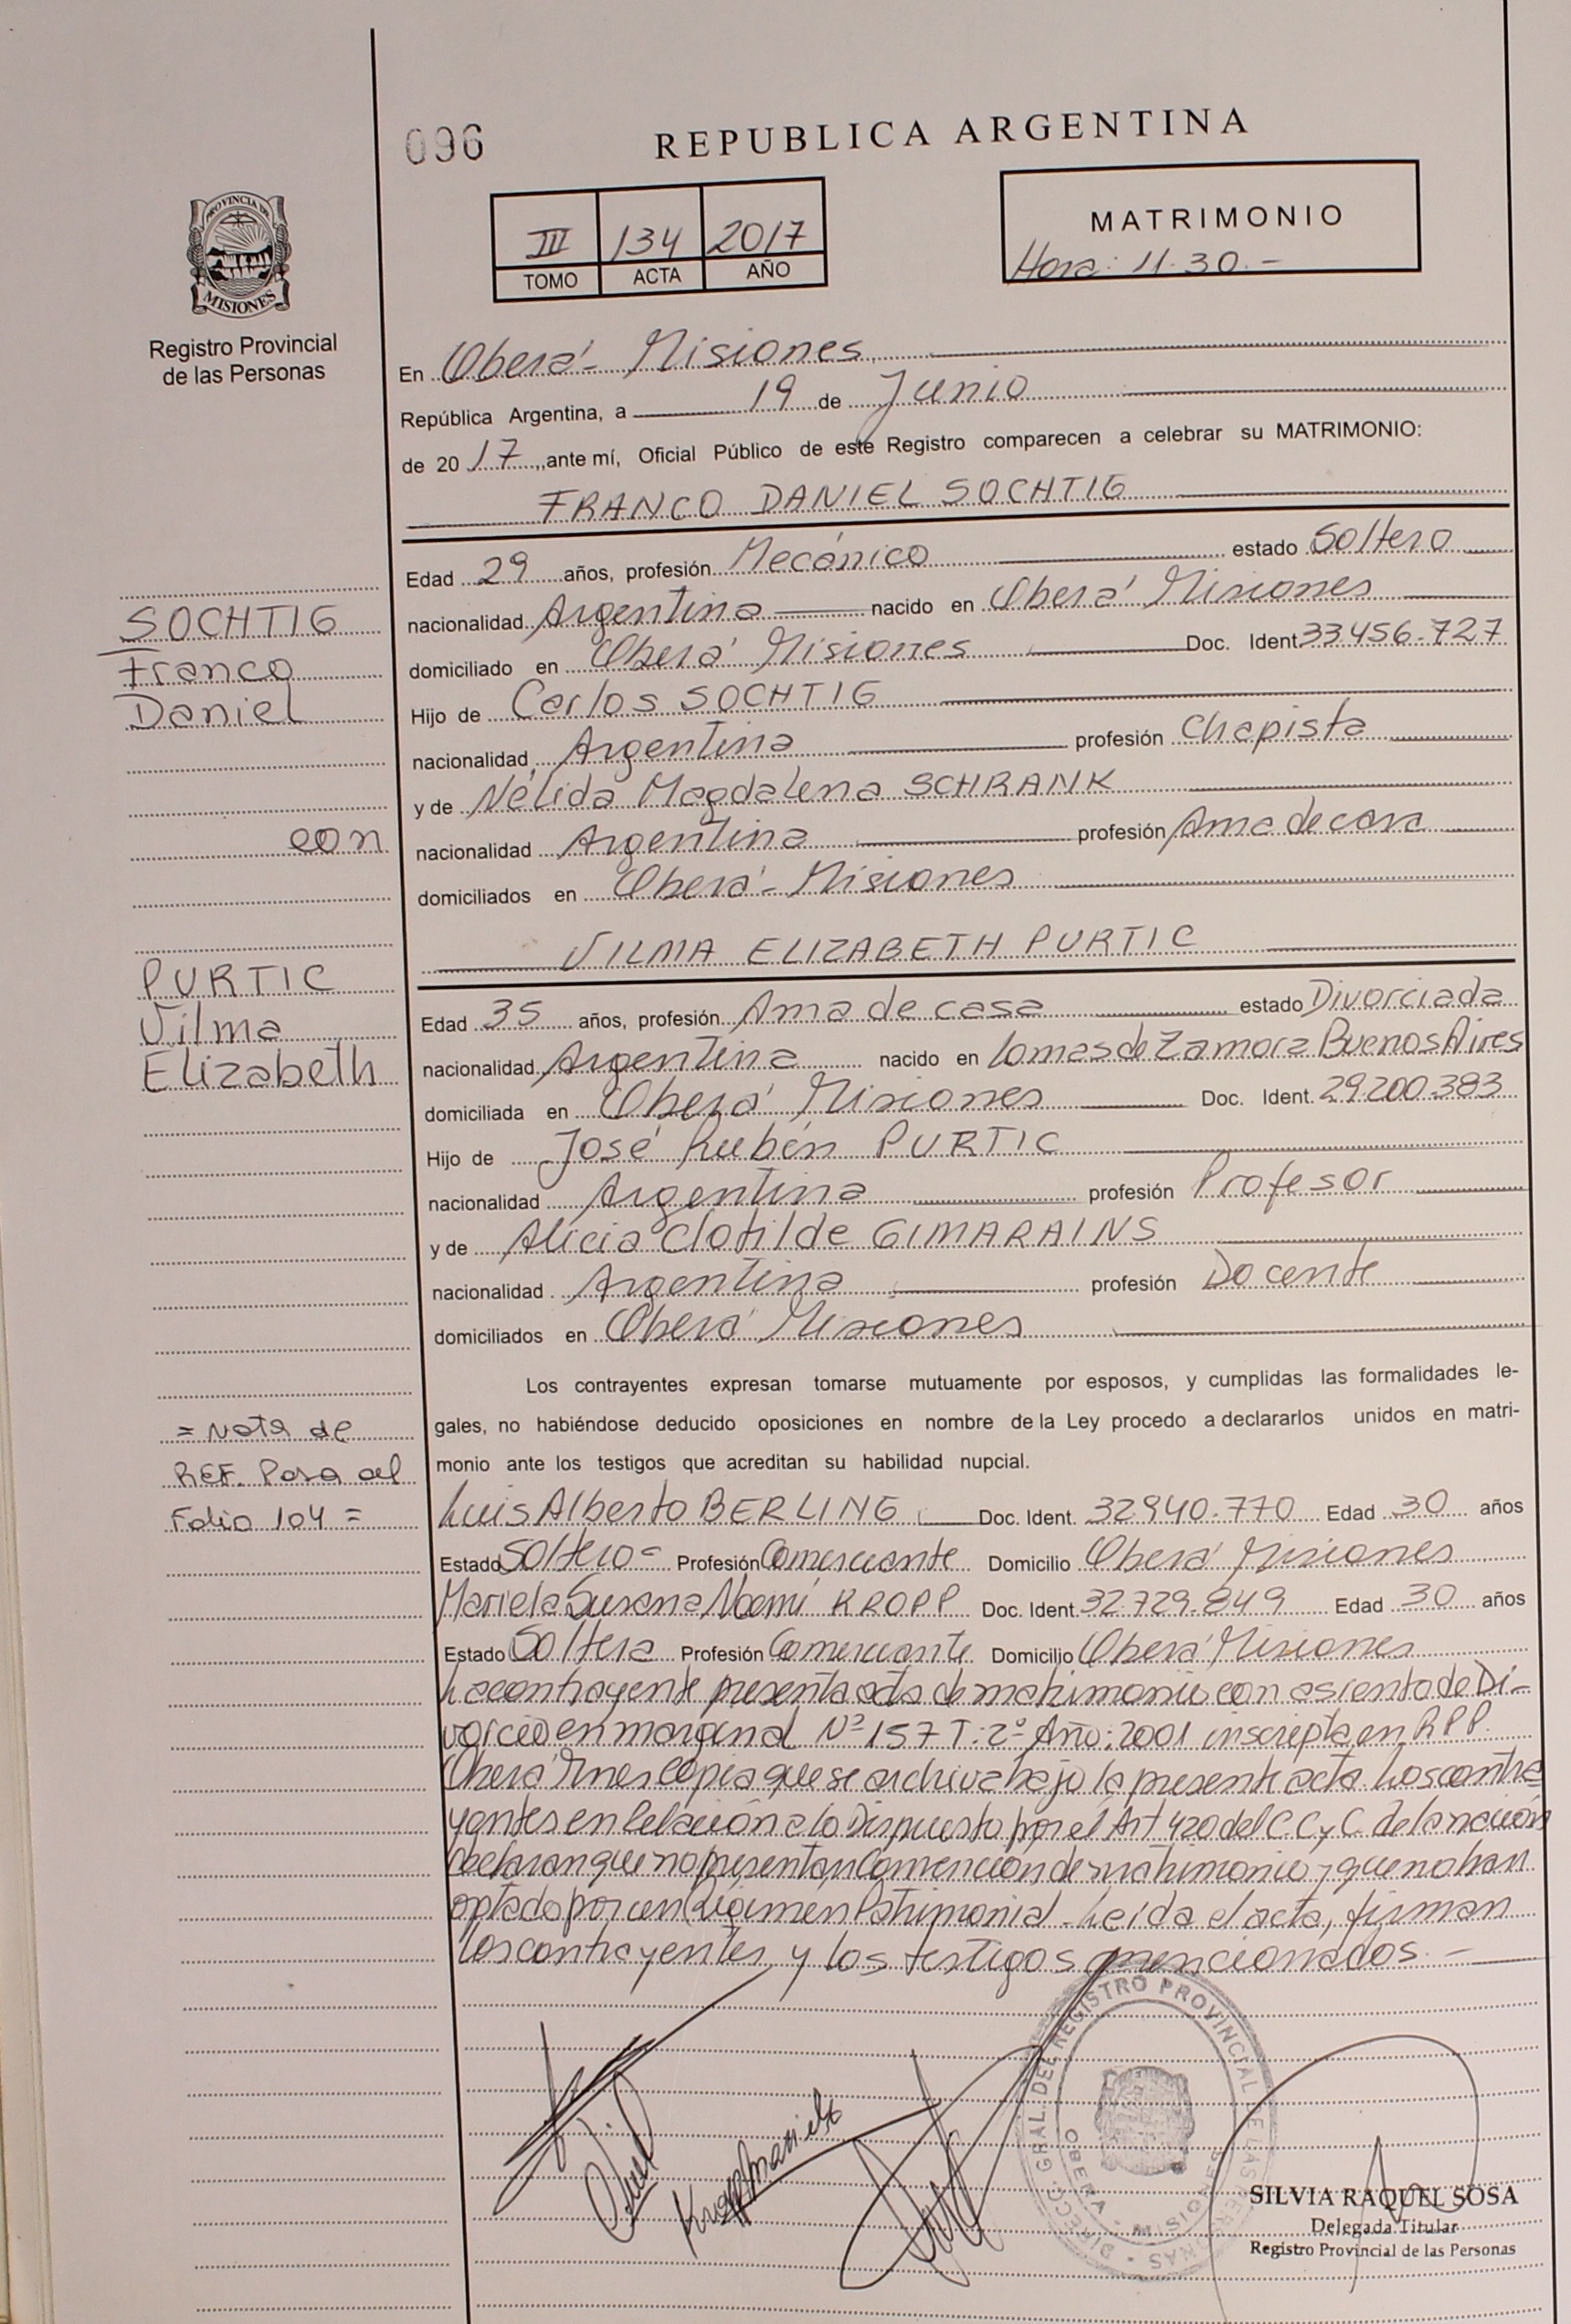 096
REPUBLICA ARGENTINA
PROVINCIA DE
MISIONES
Registro Provincial
de las Personas
III 134 2017
TOMO ACTA AÑO
MATRIMONIO
Hora: 11.30.-
En Oberá - Misiones
República Argentina, a 19 de Junio
de 2017, ante mí, Oficial Público de este Registro comparecen a celebrar su MATRIMONIO:
FRANCO DANIEL SOCHTIG
Edad 29 años, profesión Mecánico estado Soltero
nacionalidad Argentina nacido en Oberá Misiones
domiciliado en Oberá Misiones Doc. Ident. 33.456.727
Hijo de Carlos SOCHTIG
nacionalidad Argentina profesión Chapista
y de Nélida Magdalena SCHRANK
nacionalidad Argentina profesión Ama de casa
domiciliados en Oberá - Misiones
SOCHTIG
Franco
Daniel
con
PURTIC
Vilma
Elizabeth
VILMA ELIZABETH PURTIC
Edad 35 años, profesión Ama de casa estado Divorciada
nacionalidad Argentina nacido en Lomas de Zamora Buenos Aires
domiciliada en Oberá Misiones Doc. Ident. 29.200.383
Hijo de José Rubén PURTIC
nacionalidad Argentina profesión Profesor
y de Alicia Clotilde GIMARAINS
nacionalidad Argentina profesión Docente
domiciliados en Oberá Misiones
Los contrayentes expresan tomarse mutuamente por esposos, y cumplidas las formalidades le-
gales, no habiéndose deducido oposiciones en nombre de la Ley procedo a declararlos unidos en matri-
monio ante los testigos que acreditan su habilidad nupcial.
= Nota de
REF. Pasa al
Folio 104 =
Luis Alberto BERLING Doc. Ident. 32.940.770 Edad 30 años
Estado Soltero = Profesión Comerciante Domicilio Oberá Misiones
Mariela Susana Noemí KROPP Doc. Ident. 32.729.849 Edad 30 años
Estado Soltera Profesión Comerciante Domicilio Oberá Misiones
La contrayente presenta acta de matrimonio con asiento de Di-
vorcio en marginal Nº 157 T: 2º Año: 2001 inscripta en R.P.P.
Oberá Mnes copia que se archiva bajo la presente acta. Los contra
yentes en relación a lo Dispuesto por el Art 420 del C.C y C. de la nación
declaran que no presentan Convención de matrimonio y que no han
optado por un Régimen Patrimonial - Leída el acta, firman
los contrayentes y los testigos mencionados. -
Kropp Mariela
DIRECC. GRAL. DEL REGISTRO PROVINCIAL DE LAS PERSONAS
OBERA - MISIONES
SILVIA RAQUEL SOSA
Delegada Titular
Registro Provincial de las Personas